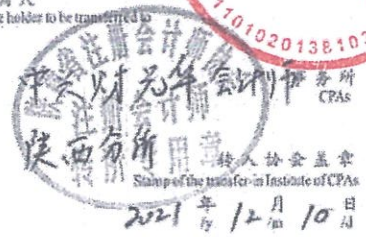 e holder to be transferred to
1101020138103
中兴财光华会计师事务所
CPAs
陕西分所
转入协会盖章
Stamp of the transfer-in Institute of CPAs
2021 年 12 月 10 日
/y /m /d